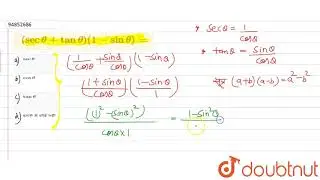 94852686
(sec θ + tan θ)(1 − sin θ) =
a)
b)
c)
d)
(1/cosθ + sinθ/cosθ)(1−sinθ)
(1+sinθ/cosθ)(1−sinθ/1)
((1)² − (sinθ)²)/(cosθ×1) = 1−sin²θ
* secθ = 1/cosθ
* tanθ = sinθ/cosθ
सूत्र (a+b)(a-b) = a²-b²
doubtnut